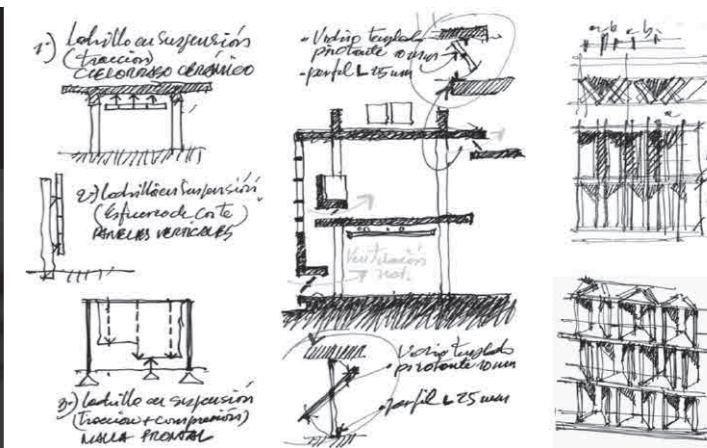 1-) Ladrillo en suspensión
(tracción)
CIELORRASO CERÁMICO
2-) Ladrillo en suspensión
(Esfuerzo de corte)
PANELES VERTICALES
3-) Ladrillo en suspensión
(Tracción + compresión)
MALLA FRONTAL
• Vidrio templado
pivotante 10 mm
• perfil L 25 mm
Ventilación
nat.
Vidrio templado
• pivotante 10 mm
• perfil L 25 mm
a b c b
a